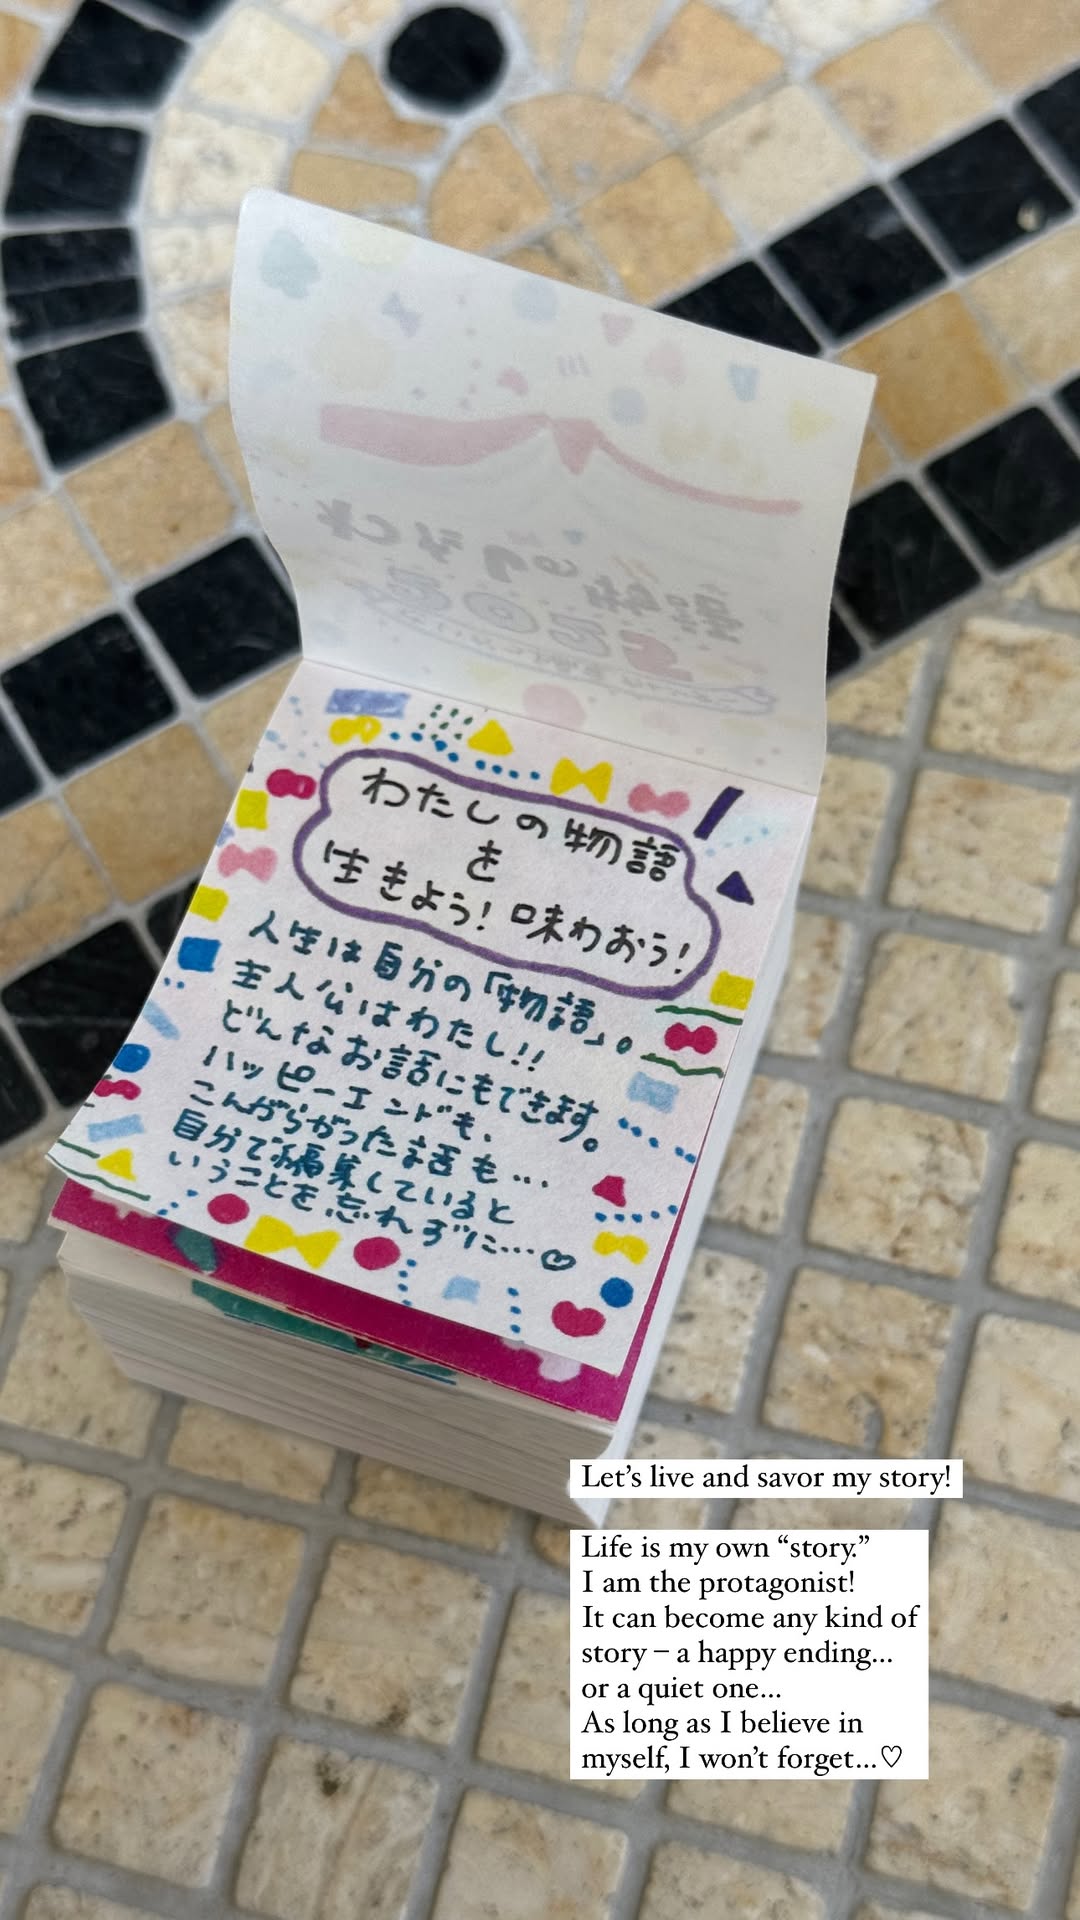 わたしの物語
を
生きよう!味わおう!
人生は自分の「物語」。
主人公はわたし!!
どんなお話にもできます。
ハッピーエンドも、
こんがらがった話も…
自分で編集していると
いうことを忘れずに…♡
Let's live and savor my story!
Life is my own “story.”
I am the protagonist!
It can become any kind of
story – a happy ending...
or a quiet one...
As long as I believe in
myself, I won't forget...♡